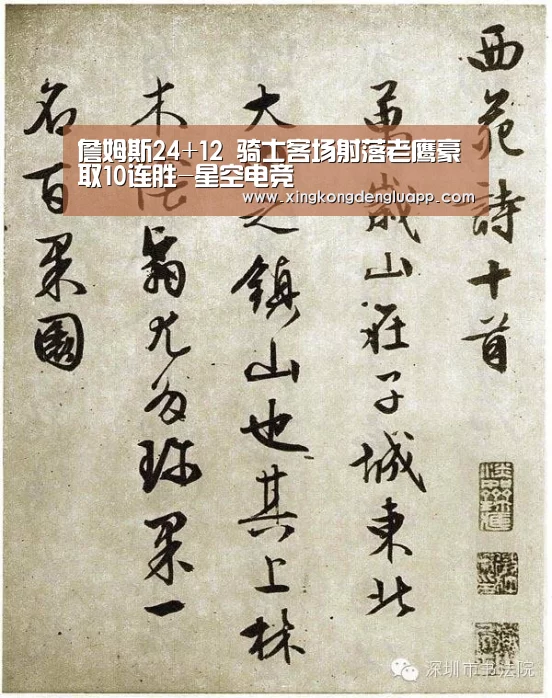 西苑詩十首
萬歲山在子城東北
大之鎮山也其上林
木翳尤多珍果一
名百果園
詹姆斯24+12 骑士客场射落老鹰豪
取10连胜-星空电竞
www.xingkongdengluapp.com
深圳市书法院